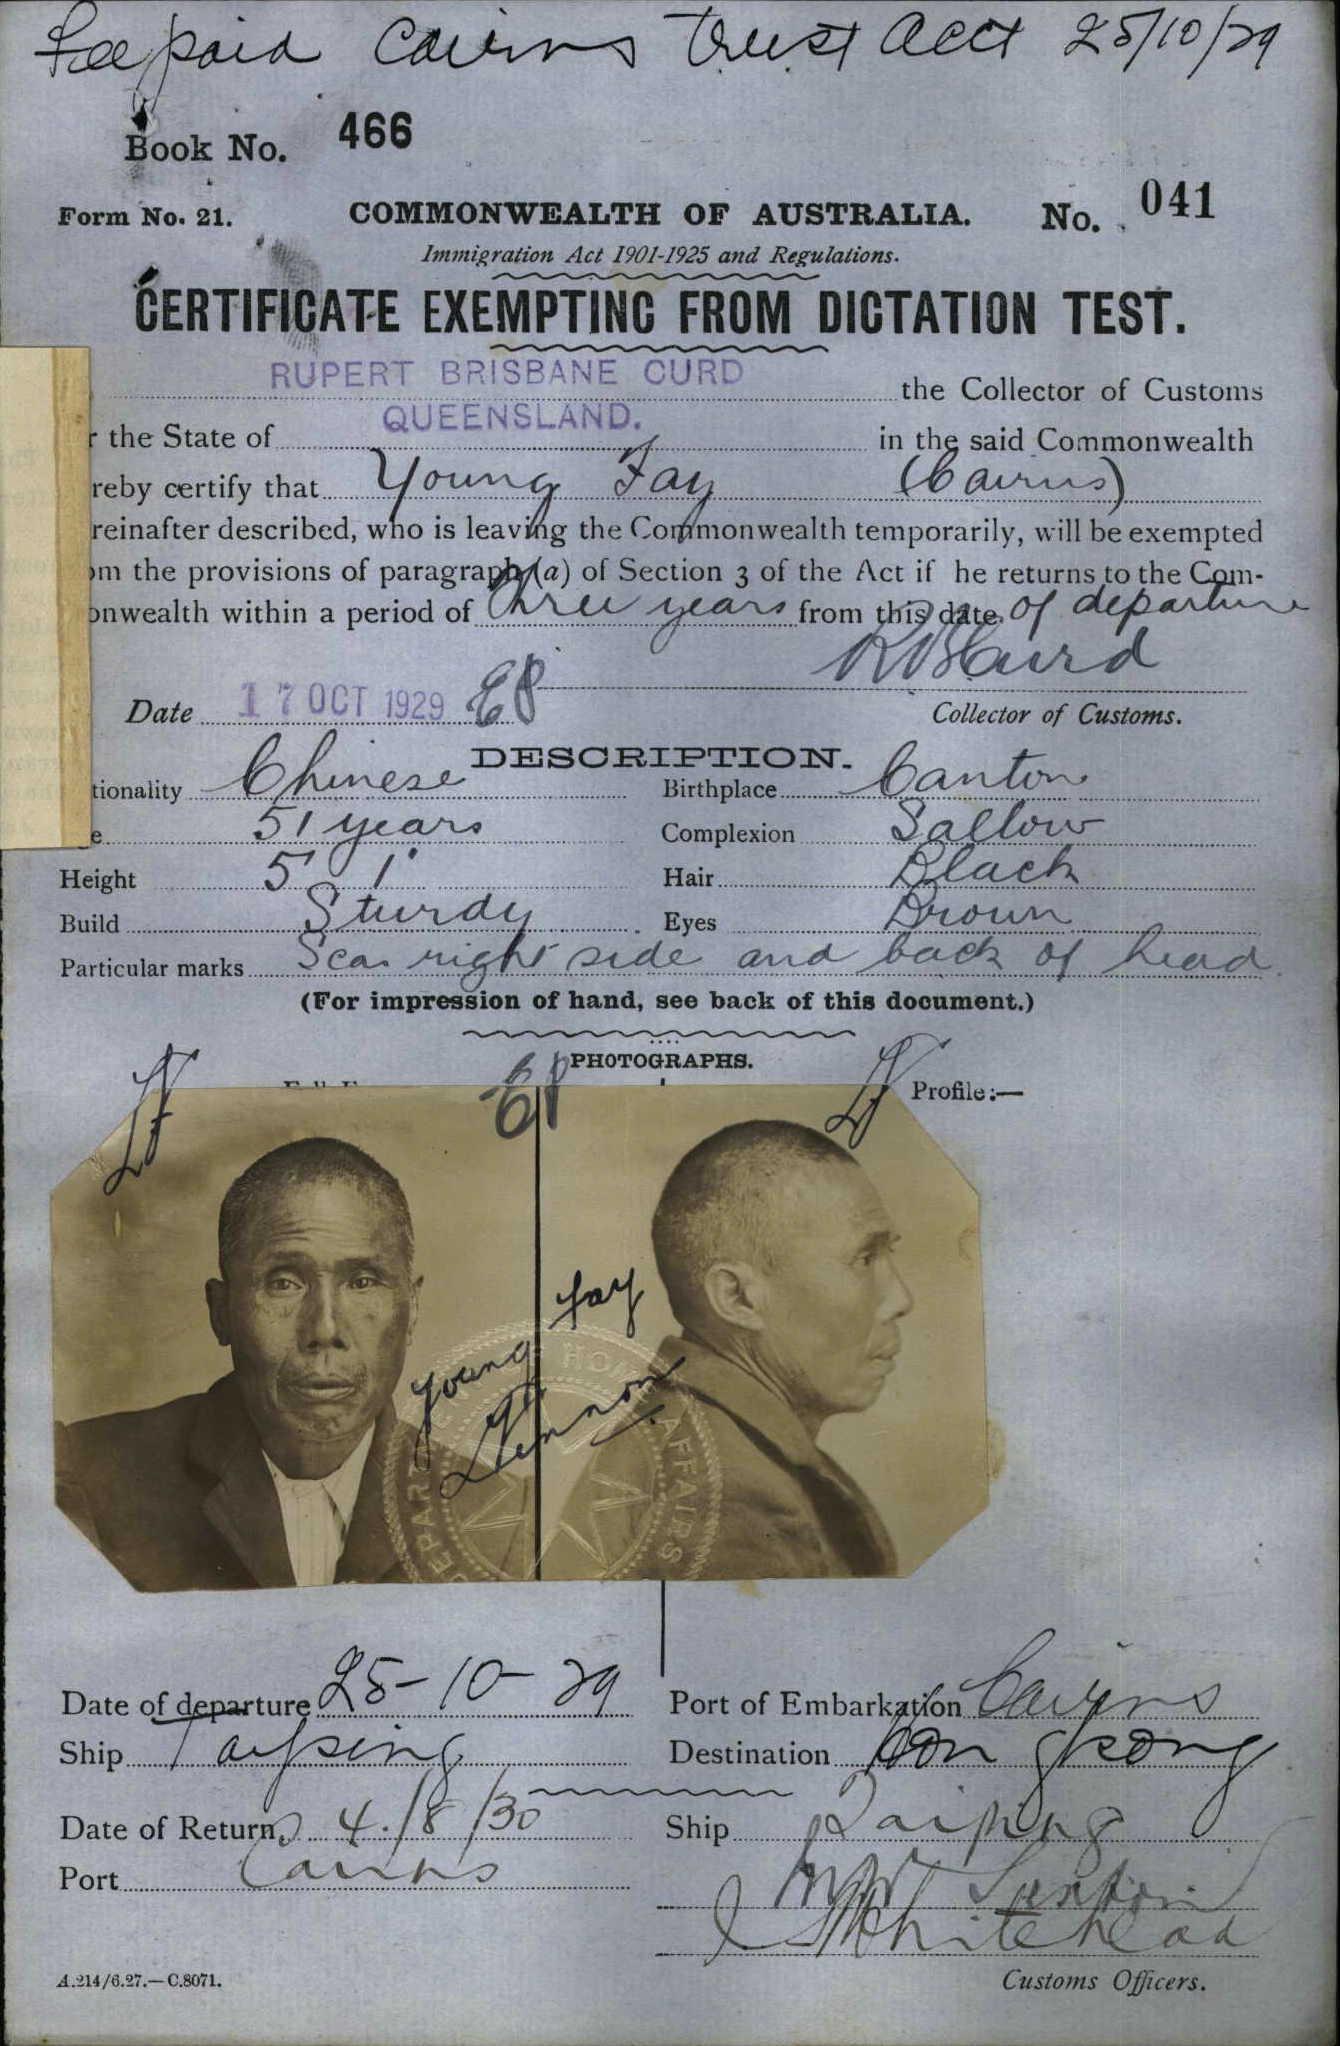 Fee paid Cairns Trust Acct 25/10/29
Book No. 466
Form No. 21. COMMONWEALTH OF AUSTRALIA. No. 041
Immigration Act 1901-1925 and Regulations.
CERTIFICATE EXEMPTING FROM DICTATION TEST.
RUPERT BRISBANE CURD the Collector of Customs
r the State of QUEENSLAND. in the said Commonwealth
reby certify that Young Fay (Cairns)
reinafter described, who is leaving the Commonwealth temporarily, will be exempted
om the provisions of paragraph (a) of Section 3 of the Act if he returns to the Com-
onwealth within a period of three years from this date of departure
R B Curd
Date 17 OCT 1929 EP Collector of Customs.
DESCRIPTION.
tionality Chinese Birthplace Canton
e 51 years Complexion Sallow
Height 5' 1" Hair Black
Build Sturdy Eyes Brown
Particular marks Scar right side and back of head.
(For impression of hand, see back of this document.)
PHOTOGRAPHS.
EP
Profile:—
Young Fay
DEPART HOME AFFAIRS
Date of departure 25-10-29 Port of Embarkation Cairns
Ship Taiping Destination Hon Kong
Date of Return 4/8/30 Ship Taiping
Port Cairns
Whitehead
A.214/6.27.—C.8071. Customs Officers.